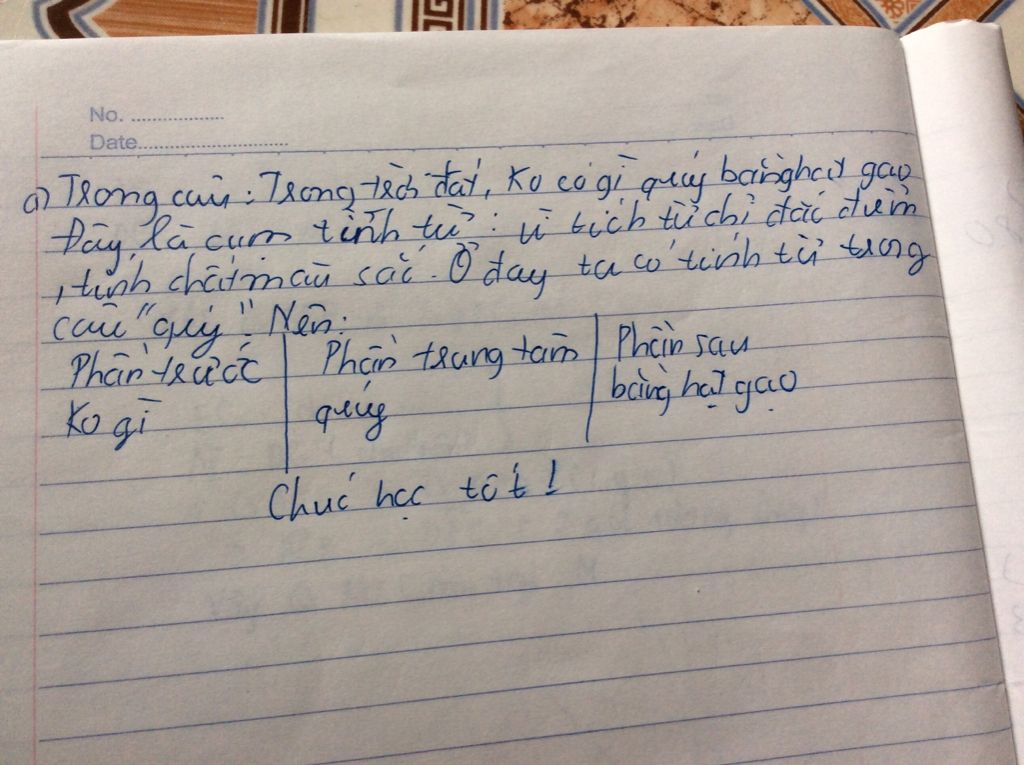 No. ....................
Date.................................
a) Trong câu: Trong trời đất, ko có gì quý bằng hạt gạo
Đây là cụm tính từ: vì tích từ chỉ đặc điểm
, tính chất màu sắc. Ở đay ta có tính từ trong
câu "quý". Nên:
Phần trước | Phần trung tâm | Phần sau
Ko gì | quý | bằng hạt gạo
Chúc học tốt!